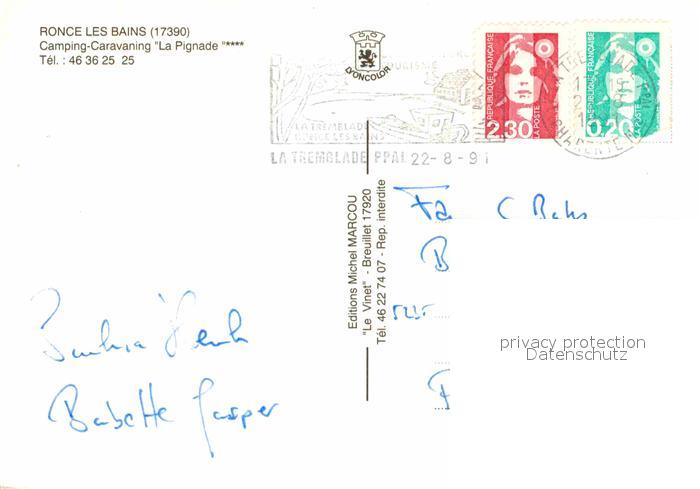 RONCE LES BAINS (17390)
Camping-Caravaning "La Pignade "****
Tél. : 46 36 25 25
LYONCOLOR
TOURISME
LA TREMBLADE
RONCE LES BAINS
LA TREMBLADE PPAL 22-8-91
REPUBLIQUE FRANÇAISE
2.30
LA POSTE
REPUBLIQUE FRANÇAISE
0,20
LA POSTE
CHARENTE
Editions Michel MARCOU
"Le Vinet" - Breuillet 17920
Tél. 46 22 74 07 - Rep. interdite
B
privacy protection
Datenschutz
Babette Jasper